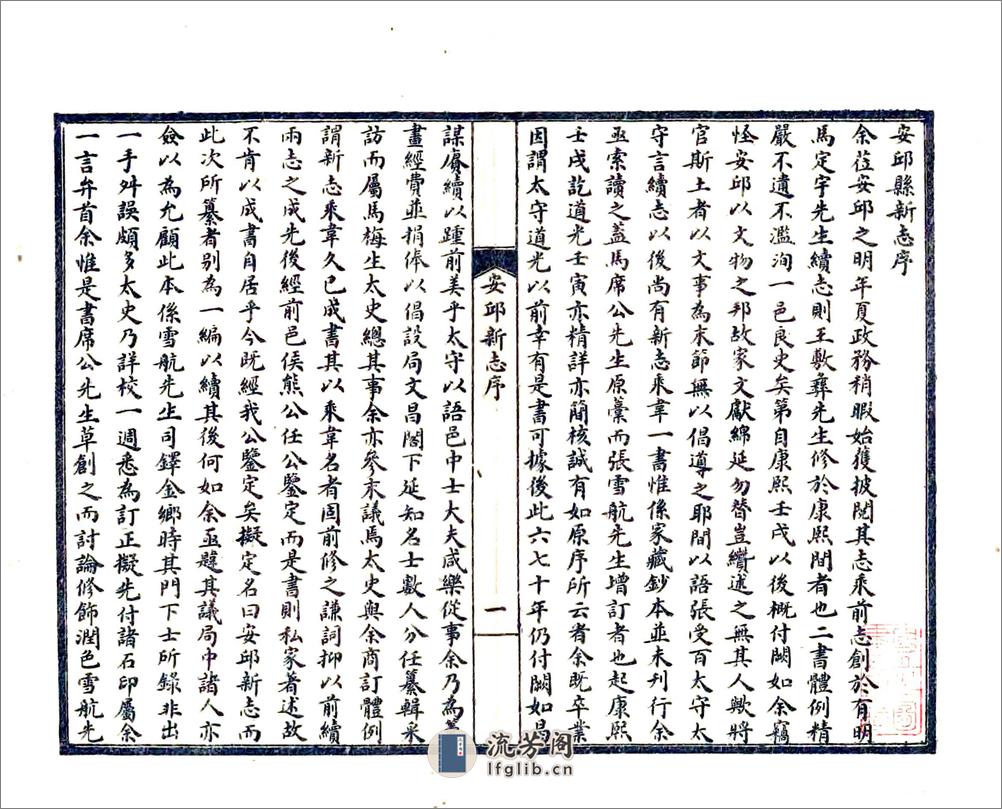 安邱縣新志序
余蒞安邱之明年夏政務稍暇始獲披閱其志乘前志創於有明
馬定宇先生續志則王敷彝先生修於康熙間者也二書體例精
嚴不遺不濫洵一邑良史矣第自康熙壬戌以後概付闕如余竊
怪安邱以文物之邦故家文獻綿延勿替豈纘述之無其人歟將
官斯土者以文事為末節無以倡導之耶間以語張受百太守太
守言續志以後尚有新志乘韋一書惟係家藏鈔本並未刊行余
亟索讀之蓋馬席公先生原藁而張雪航先生增訂者也起康熙
壬戌訖道光壬寅亦精詳亦簡核誠有如原序所云者余既卒業
因謂太守道光以前幸有是書可據後此六七十年仍付闕如曷
安邱新志序
一
謀賡續以踵前美乎太守以語邑中士大夫咸樂從事余乃為
畫經費並捐俸以倡設局文昌閣下延知名士數人分任纂輯采
訪而屬馬梅生太史總其事余亦參末議馬太史與余商訂體例
謂新志乘韋久已成書其以乘韋名者固前修之謙詞抑以前續
兩志之成先後經前邑侯熊公任公鑒定而是書則私家著述故
不肯以成書自居乎今既經我公鑒定矣擬定名曰安邱新志而
此次所纂者別為一編以續其後何如余亟韙其議局中諸人亦
僉以為允顧此本係雪航先生司鐸金鄉時其門下士所錄非出
一手舛誤頗多太史乃詳校一週悉為訂正擬先付諸石印屬余
一言弁首余惟是書席公先生草創之而討論修飾潤色雪航先
流芳閣
lfglib.cn